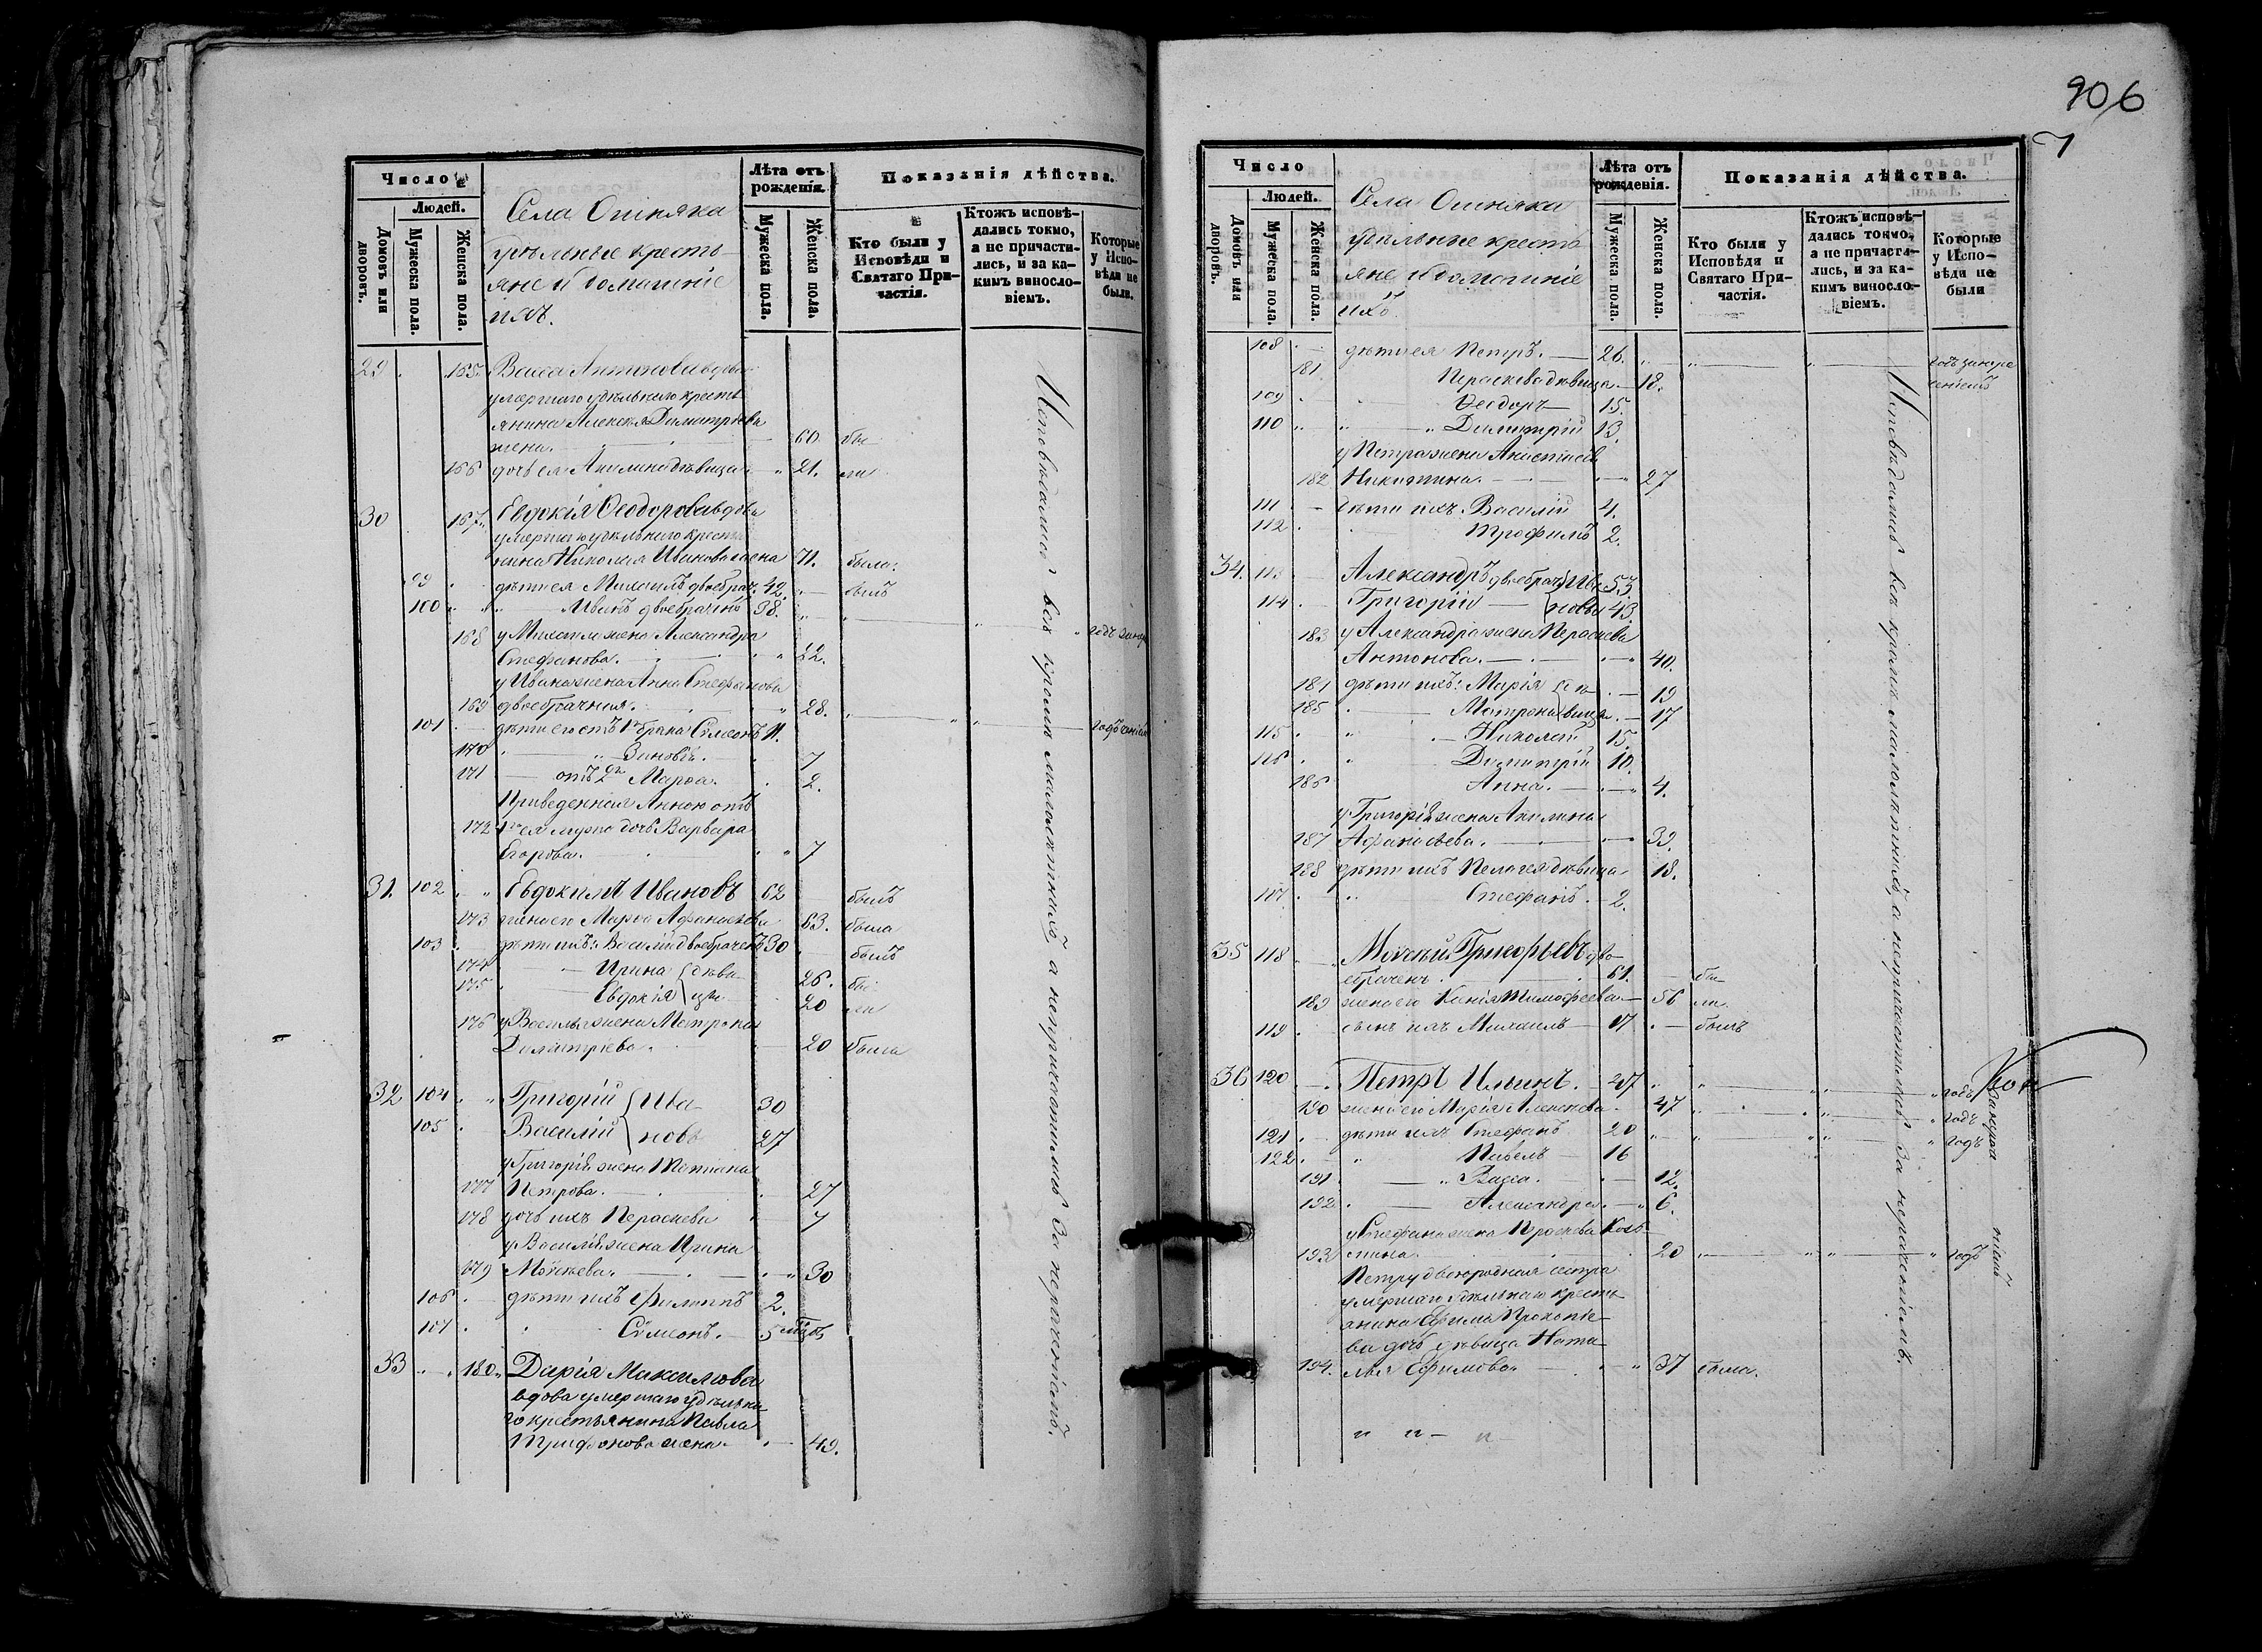 906
7
Число
Людей.
Домовъ или дворовъ.
Мужеска пола.
Женска пола.
Села Ошняка
удѣльные кресть-
яне и домашніе
ихъ.
Лѣта отъ рожденія.
Мужеска пола.
Женска пола.
Показанія дѣйства.
Кто были у Исповѣди и Святаго При-частія.
Ктожъ исповѣ-дались токмо, а не причасти-лись, и за ка-кимъ винослo-віемъ.
Которые у Испо-вѣди не были.
29 165 Васса Антонова вдова
умершаго удѣльнаго кресть
янина Алексѣя Димитріева
жена. 60 бы
166 дочь ея Акилина дѣвица 21. ли
30 167 Евдокія Ѳеодорова вдова
умершаго удѣльнаго кресть
янина Николая Иванова жена 71. была.
99 дѣти ея Михаилъ двоебрач. 42. былъ
100 Иванъ двоебрачнъ 38.
168 у Михаила жена Александра
Стефанова. 32.
у Ивана жена Анна Стефанова
169 двоебрачная. 28.
101 дѣти его отъ 1го брака Сѵмеонъ 11.
170 Зиновія. 7
171 отъ 2го Марѳа. 2.
Приведенная Анною отъ
172 1го ея мужа дочь Варвара
Егорова. 7
31. 102 Евдокимъ Ивановъ 62 былъ
173 жена его Марѳа Афанасьева 63. была
103 дѣти ихъ: Василій двоебраченъ 30 былъ
174 Ирина дѣви- 26. бы-
175 Евдокія цы 20 ли
176 у Василья жена Матрона
Димитріева. 20 была
32 104 Григорій Ива- 30
105 Василій новы 27
у Григорія жена Татіана
177 Петрова. 27
178 дочь ихъ Параскева 7
у Василія жена Ирина
179 Моѵсеева. 30
106 дѣти ихъ Филиппъ 2.
107 Сѵмеонъ. 5 мѣц
33 180 Дарія Максимова
вдова умершаго удѣльна-
го крестьянина Павла
Трифонова жена. 49.
Исповѣдались всѣ кромѣ малолѣтнихъ, а непричастились за нераченіемъ.
Число
Людей.
Домовъ или дворовъ.
Мужеска пола.
Женска пола.
Села Ошняка
удѣльные кресть
яне и домашніе
ихъ.
Лѣта отъ рожденія.
Мужеска пола.
Женска пола.
Показанія дѣйства.
Кто были у Исповѣди и Святаго При-частія.
Ктожъ исповѣ-дались токмо, а не причасти-лись, и за ка-кимъ винослo-віемъ.
Которые у Испо-вѣди не были
108 дѣти ея Петръ. 26.
181 Параскева дѣвица 18.
109 Ѳеодоръ 15.
110 Димитрій 13.
у Петра жена Анастасія
182 Никитина. 27
111 дѣти ихъ Василій 4.
112 Трофимъ 2.
34. 113 Александръ двоебрач. Ива- 53.
114 Григорій новы 43.
183 у Александра жена Параскева
Антонова. 40.
184 дѣти ихъ: Марія дѣ- 19
185 Матрона вицы 17
115 Николай 15.
116 Димитрій 10.
186 Анна. 4.
у Григорія жена Акилина
187 Афанасьева. 39.
188 дѣти ихъ Пелагея дѣвица 18.
117 Стефанъ. 2.
35 118 Моѵсей Григорьевъ дво-
ебраченъ. 61. бы-
189 жена его Ксенія Тимофеева 56 ли.
119 сынъ ихъ Михаилъ 17 былъ
36 120 Петръ Ильинъ. 47
190 жена его Марія Алексеева 47 годъ
121 дѣти ихъ Стефанъ 20 годъ
122 Павелъ 16
191 Васса. 12.
192 Александра. 6.
у Стефана жена Праскева Козь-
193 мина. 20 годъ
Петру двоюродная сестра
умершаго удѣльнаго кресть-
янина Ефима Прокопіе-
ва дочь дѣвица Ната-
194. лья Ефимова. 37 была.
Исповѣдались всѣ кромѣ малолѣтнихъ, а непричастились за нераченіемъ.